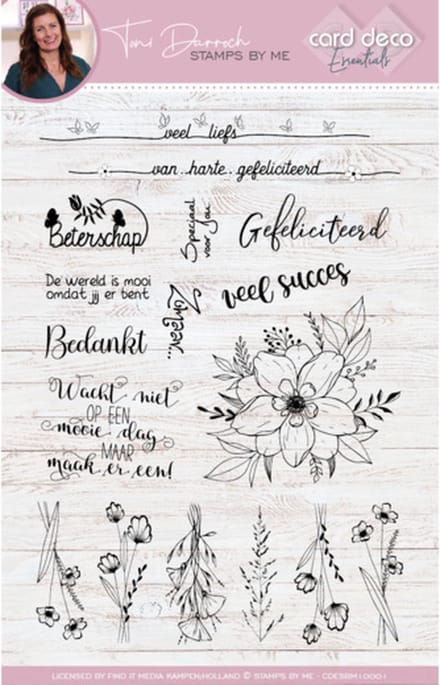 Toni Darroch
STAMPS BY ME
card deco
Essentials
veel liefs
van harte gefeliciteerd
Beterschap
Speciaal
voor jou
Gefeliciteerd
De wereld is mooi
omdat jij er bent
Zomaar...
veel succes
Bedankt
Wacht niet
OP EEN
mooie dag
MAAR
maak er een!
LICENSED BY FIND IT MEDIA KAMPEN/HOLLAND © STAMPS BY ME - CDESBM10001